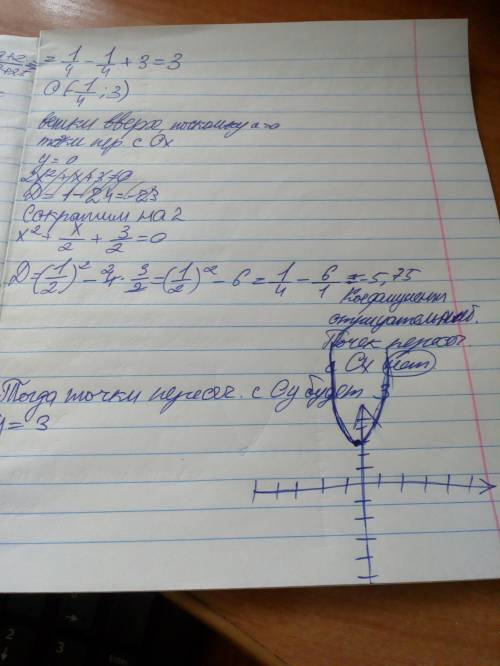 = 1/4 - 1/4 + 3 = 3
O (-1/4; 3)
ветки вверх, поскольку a>0
точки пер. с Ox
y=0
2x²+x+3=0
D = 1 - 24 = -23
Сократим на 2
x² + x/2 + 3/2 = 0
D = (1/2)² - 4 · 3/2 = (1/2)² - 6 = 1/4 - 6/1 = -5,75
отрицательный.
Точек пересеч.
с Ox нет
Тогда точки пересеч. с Oy будет 3
y = 3